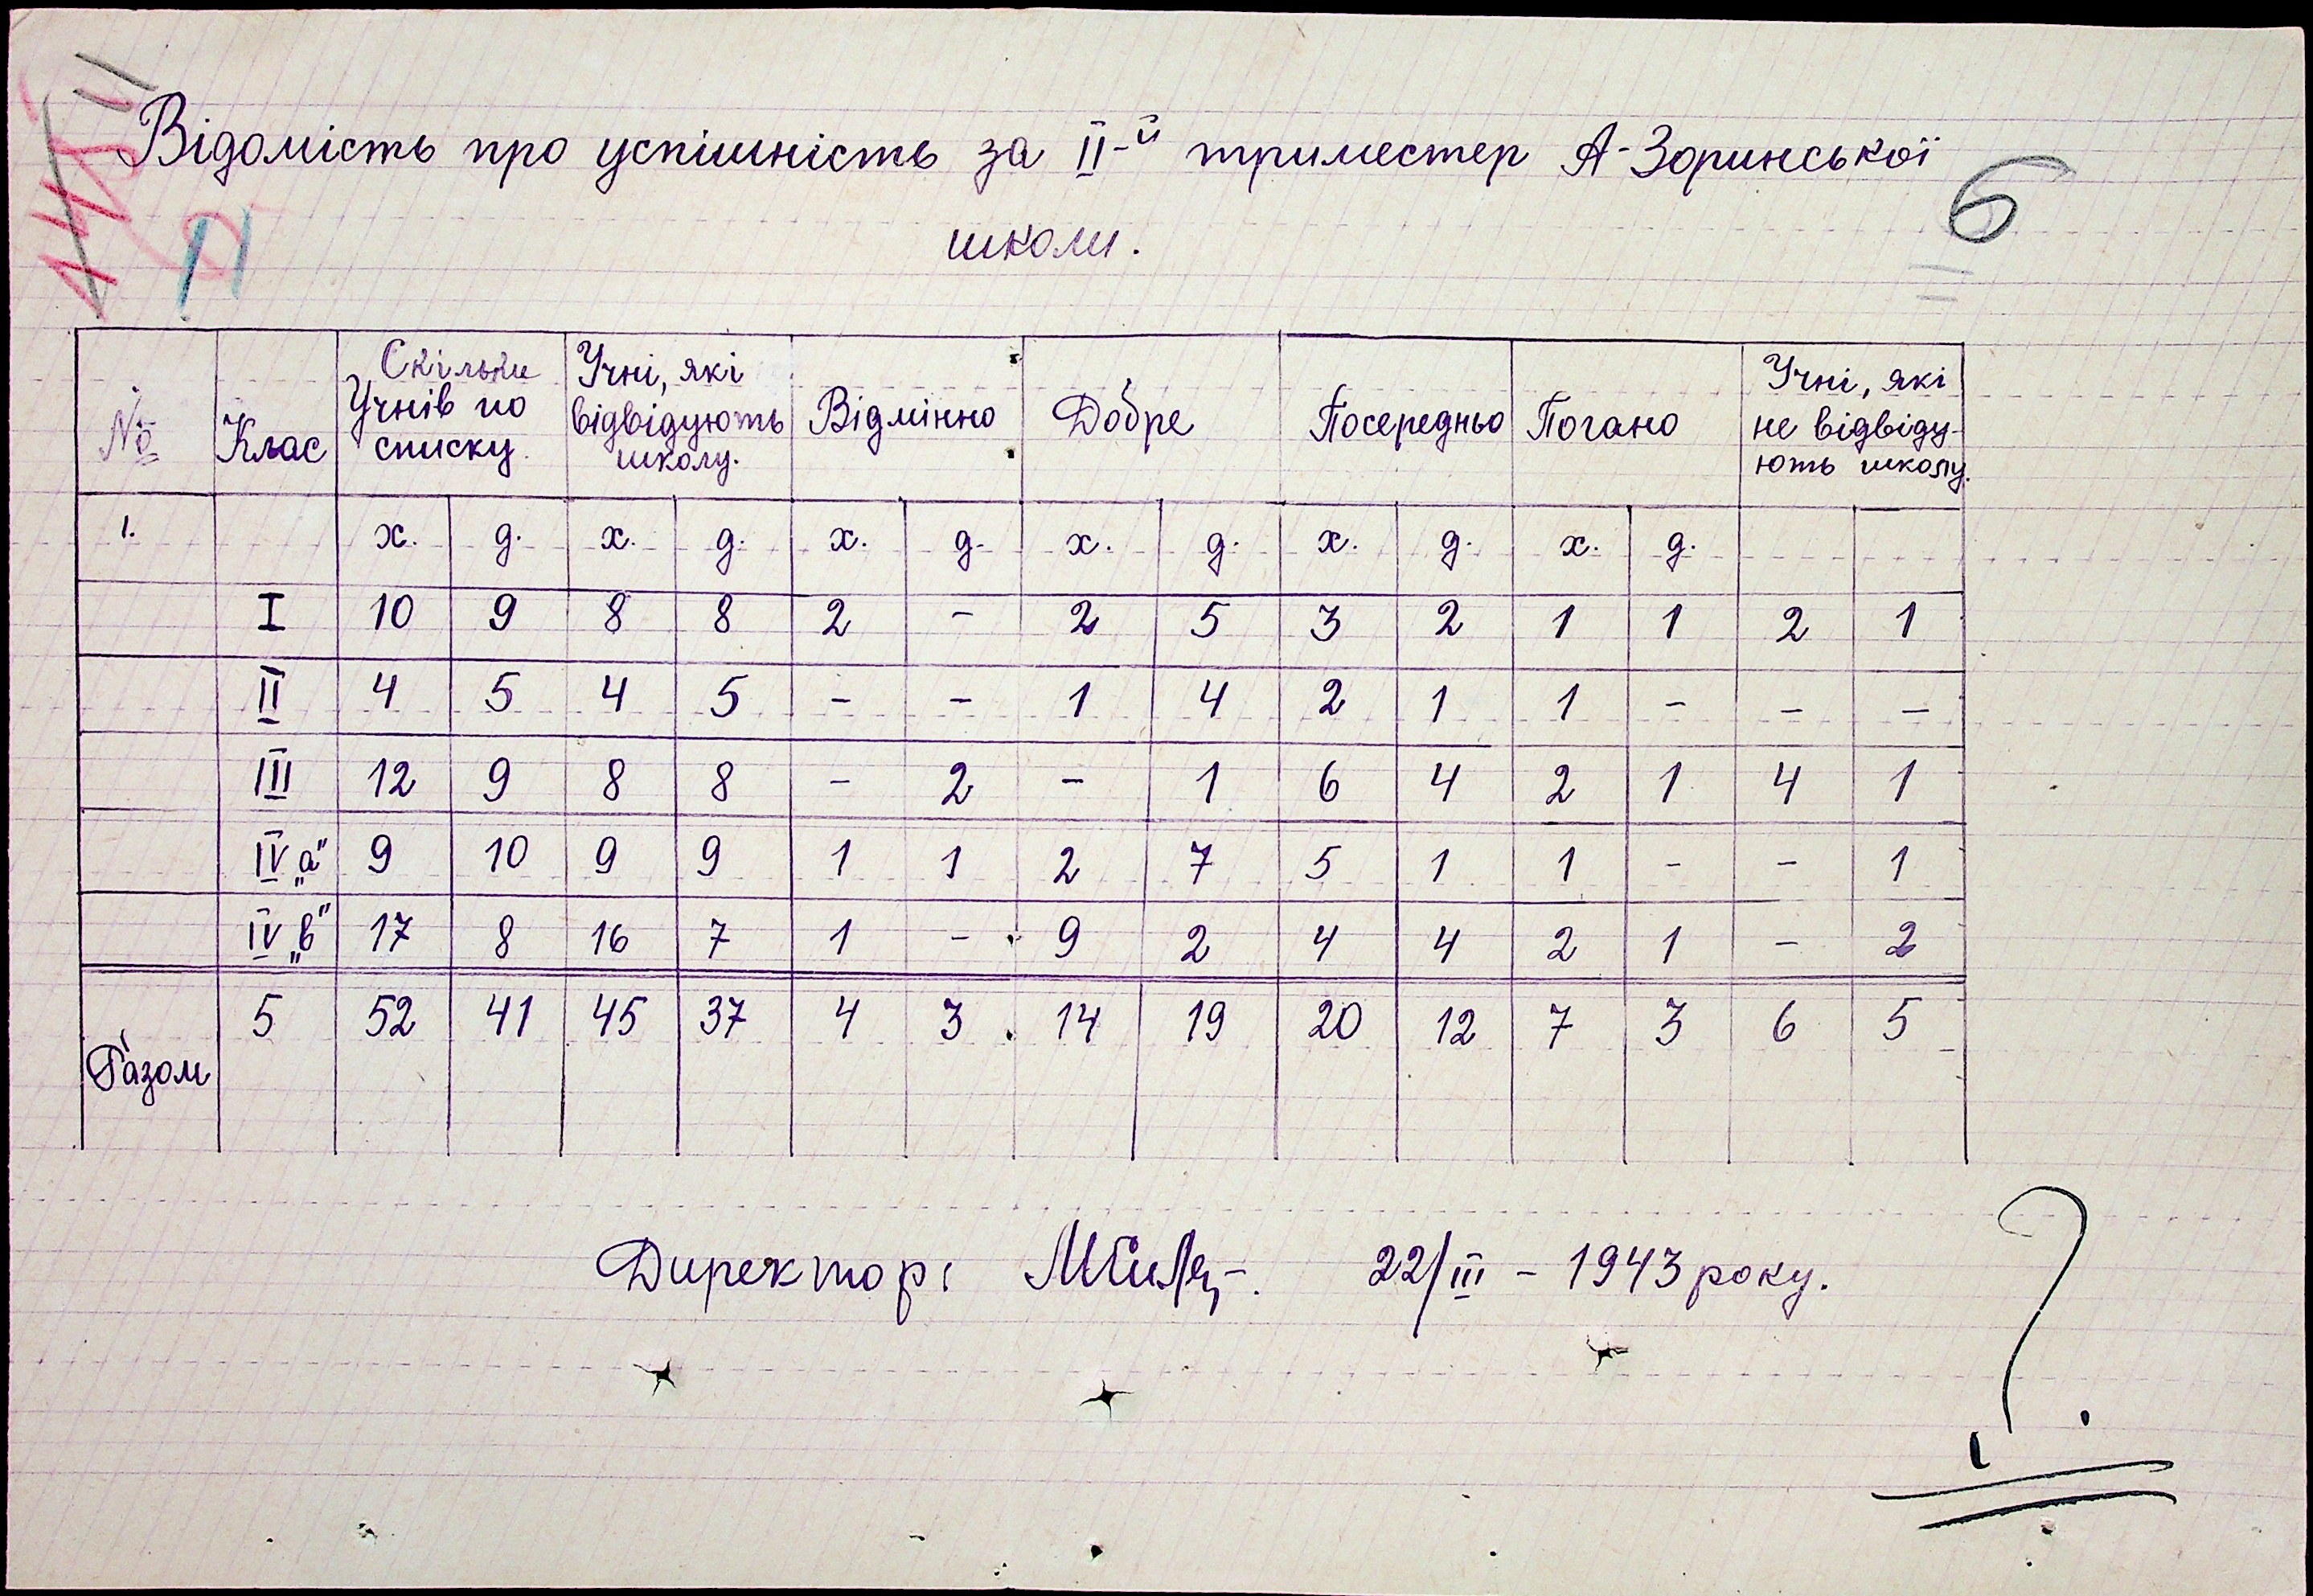 Відомість про успішність за II-й триместер А-Зоринської
школи.
6
№ Клас Скільки учнів по списку. Учні, які відвідують школу. Відмінно Добре Посередньо Погано Учні, які не відвідують школу.
1. х. д. х. д. х. д. х. д. х. д. х. д.
I 10 9 8 8 2 - 2 5 3 2 1 1 2 1
II 4 5 4 5 - - 1 4 2 1 1 - - -
III 12 9 8 8 - 2 - 1 6 4 2 1 4 1
IV „а" 9 10 9 9 1 1 2 7 5 1 1 - - 1
IV „в" 17 8 16 7 1 - 9 2 4 4 2 1 - 2
Разом 5 52 41 45 37 4 3 14 19 20 12 7 3 6 5
Директор: 22/III - 1943 року.
?